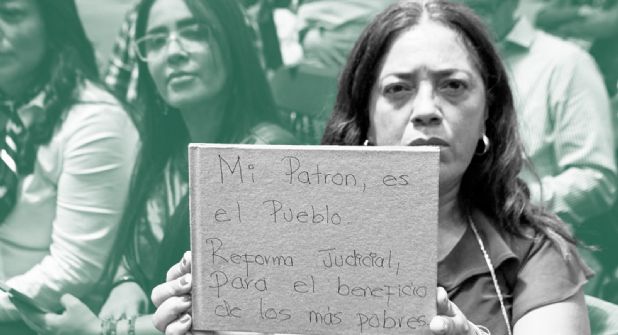 Mi Patron, es
el Pueblo.
Reforma Judicial,
para el beneficio
de los más pobres.